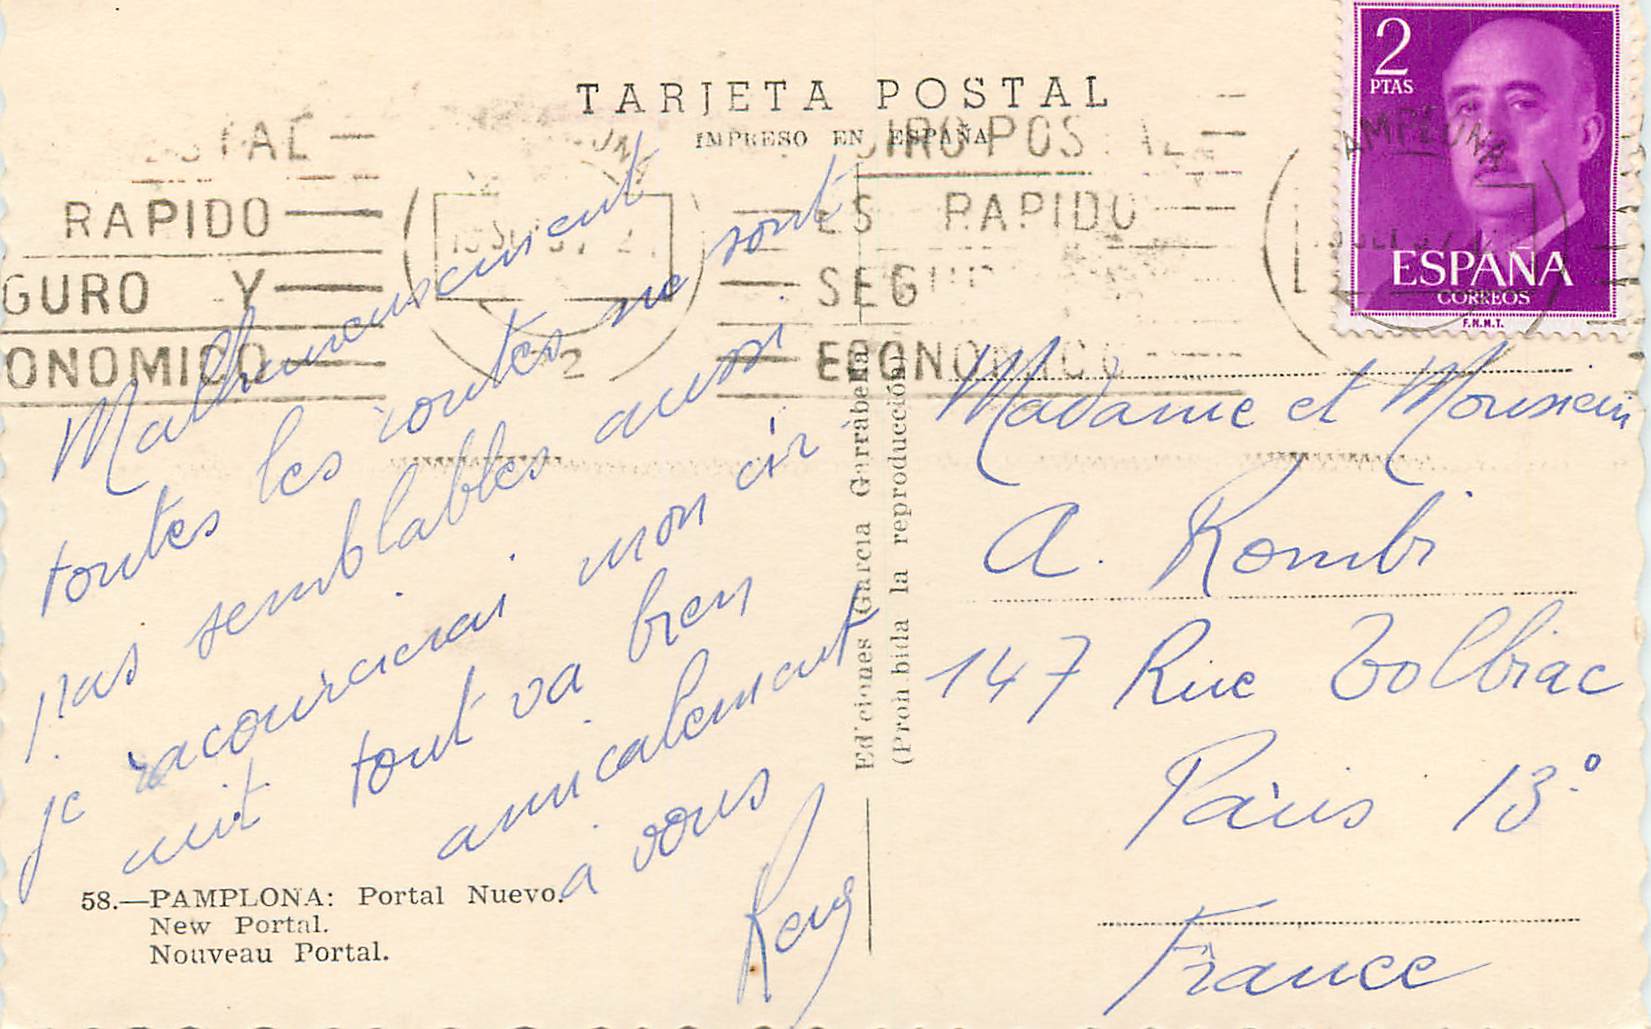 TARJETA POSTAL
IMPRESO EN ESPAÑA
2
PTAS
ESPAÑA
CORREOS
F.N.M.T.
TAL
RAPIDO
GURO Y
ONOMICO
2
GIRO POSTAL
ES RAPIDO
SEGU
ECONOMICO
PAMPLONA
Malheureusement
toutes les routes ne sont
pas semblables aussi
je racourcierai mon cir
uit tout va bien
amicalement
à vous
Madame et Monsieur
A. Rombi
147 Rue Tolbiac
Paris 13°
France
Ediciones García Garrabella
(Prohibida la reproducción)
58.—PAMPLONA: Portal Nuevo.
New Portal.
Nouveau Portal.